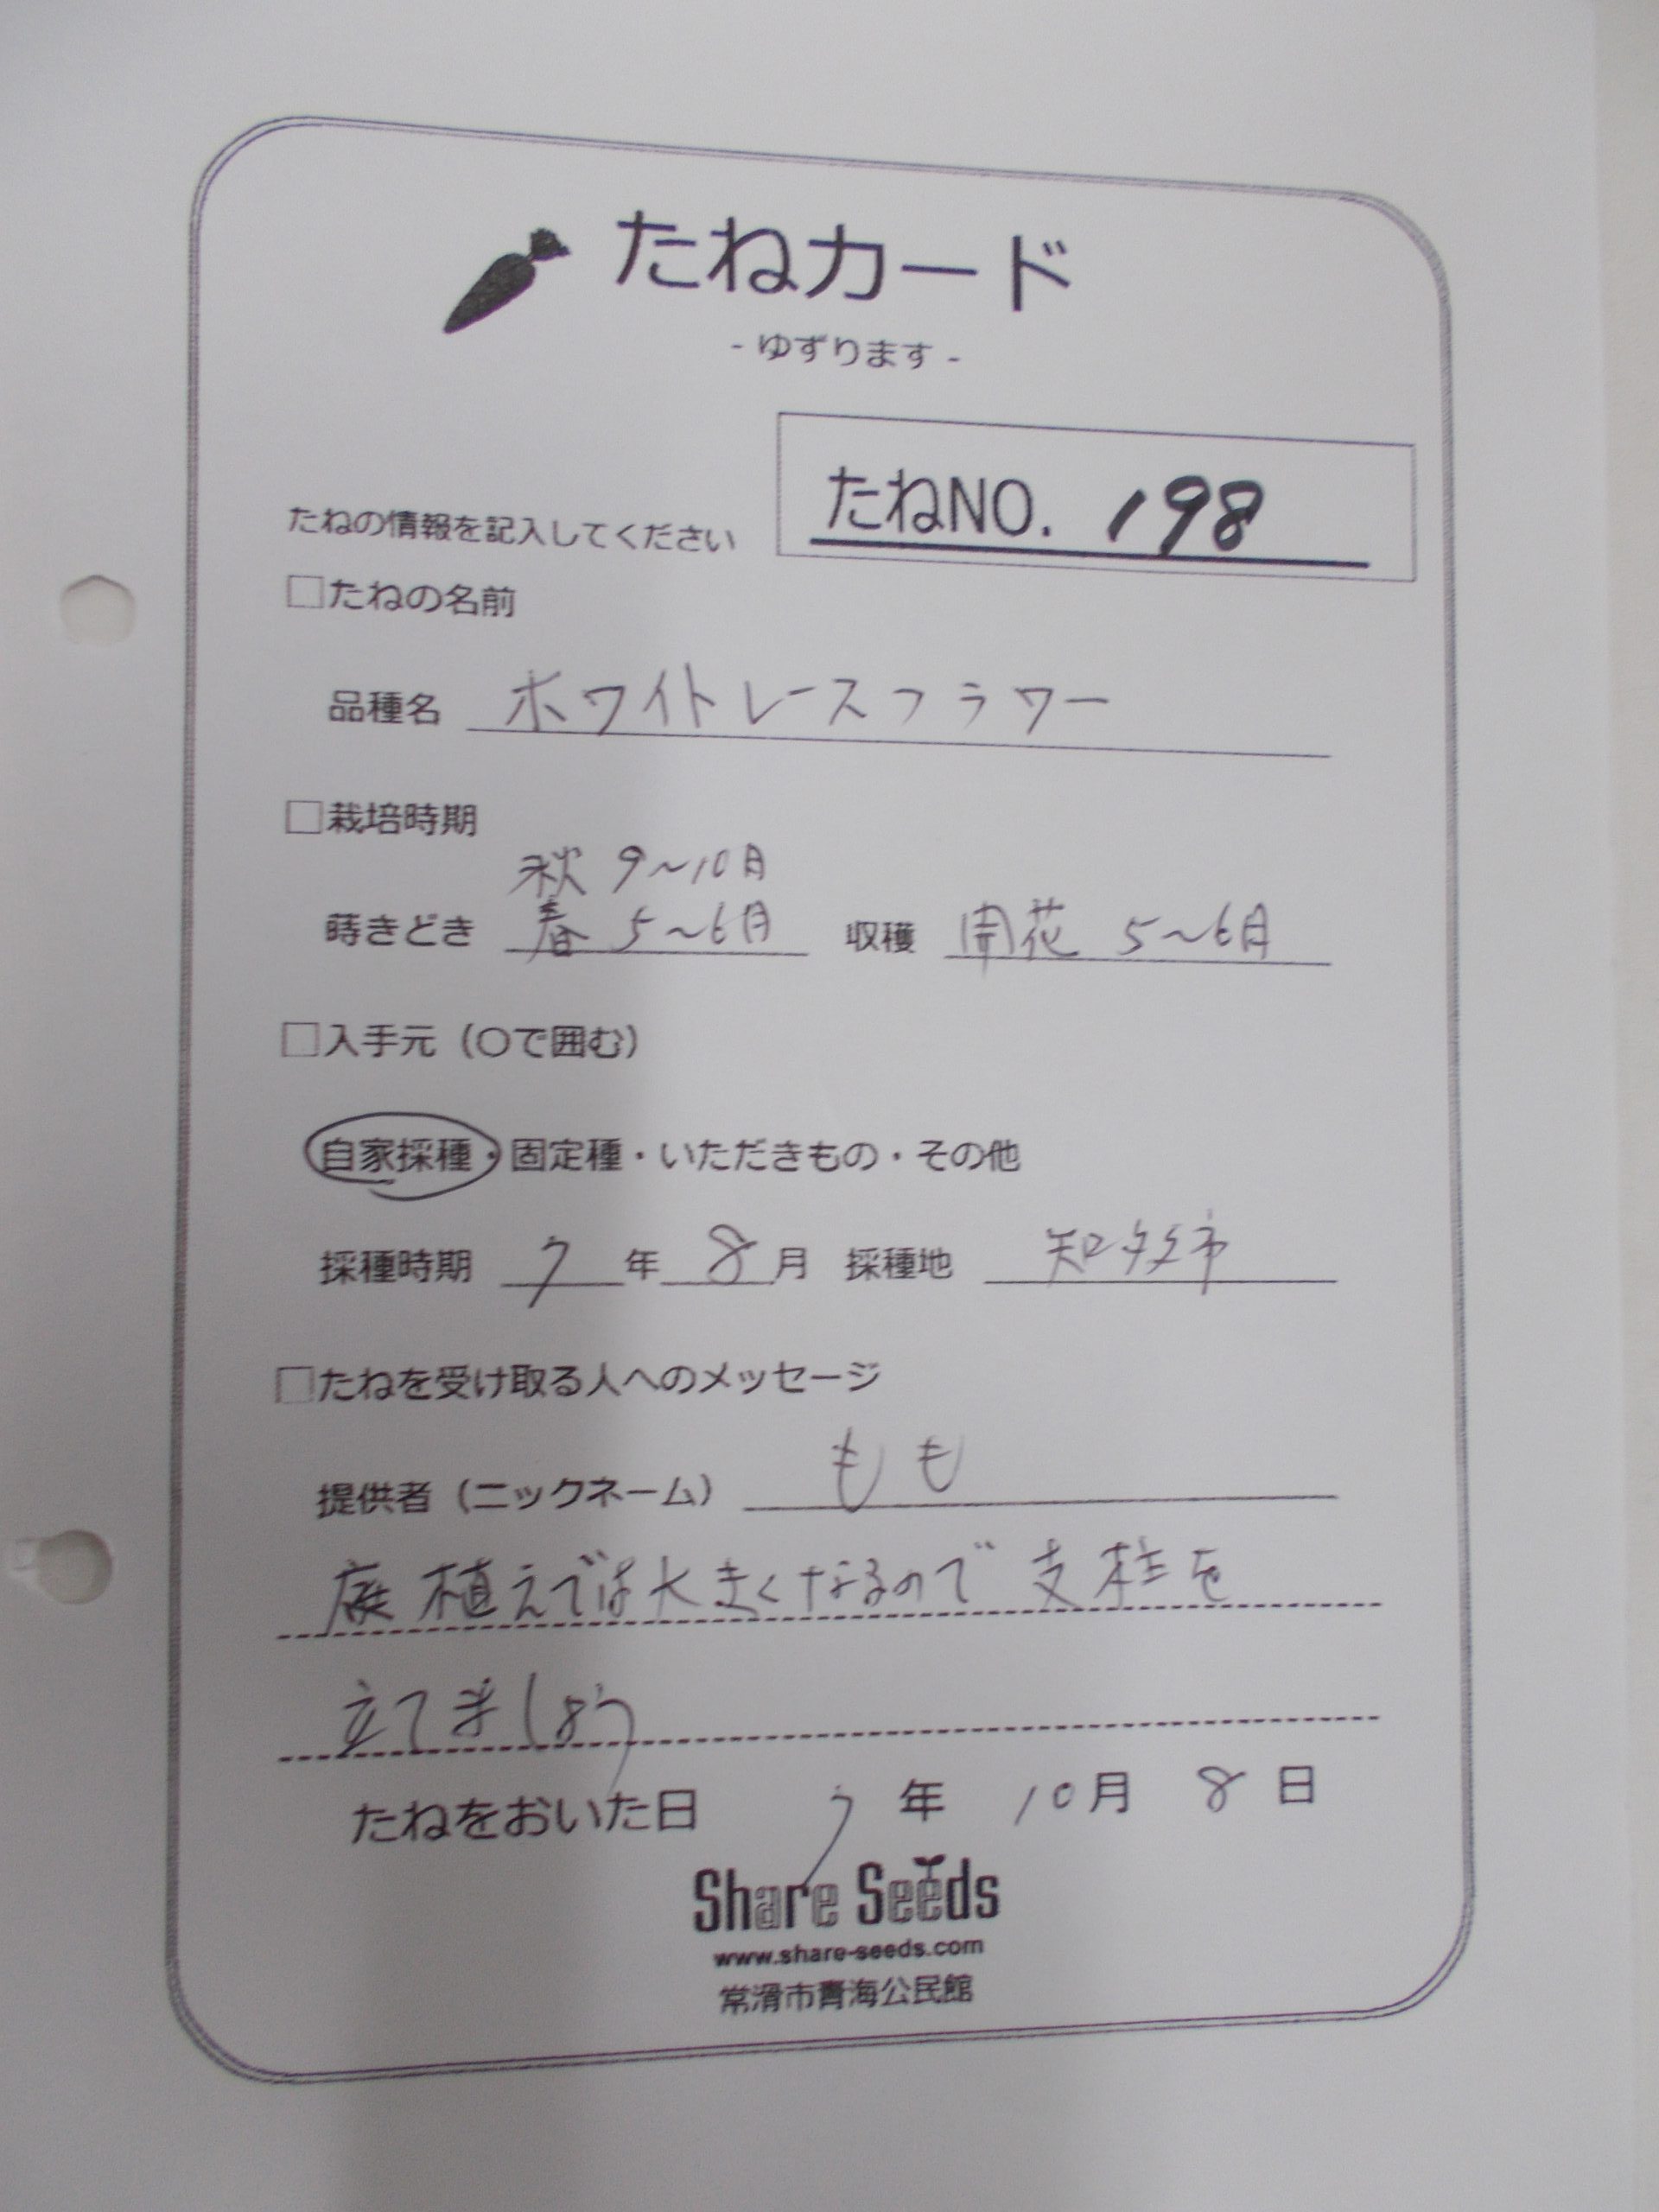 たねカード
- ゆずります -
たねNO. 198
たねの情報を記入してください
□たねの名前
品種名 ホワイトレースフラワー
□栽培時期
秋 9～10月
蒔きどき 春 5～6月 収穫 開花 5～6月
□入手元（○で囲む）
自家採種・固定種・いただきもの・その他
採種時期 7 年 8 月 採種地 知多市
□たねを受け取る人へのメッセージ
提供者（ニックネーム） もも
庭植えでは大きくなるので支柱を
立てましょう
たねをおいた日 7 年 10 月 8 日
Share Seeds
www.share-seeds.com
常滑市青海公民館